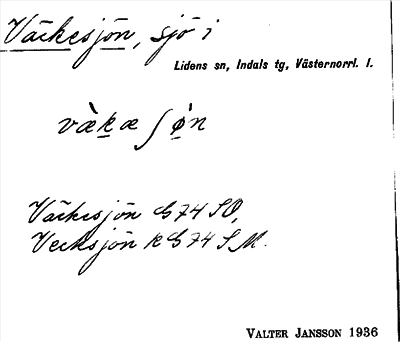 Väckesjön, sjö i
Lidens sn, Indals tg, Västernorrl. l.
væ̀kæʃø̀n
Väckesjön G74 SO,
Vecksjön k G74 SM.
VALTER JANSSON 1936